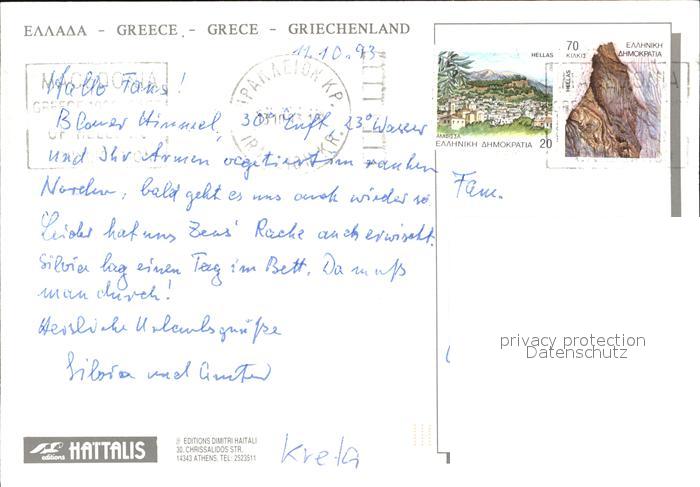 ΕΛΛΑΔΑ - GREECE - GRECE - GRIECHENLAND
11.10.93
Hallo Fans!
Blauer Himmel, 30° Luft, 23° Wasser
und Ihr Armen vegetiert im rauhen
Norden, bald geht es uns auch wieder so.
Leider hat uns Zeus' Rache auch erwischt.
Silvia lag einen Tag im Bett. Da muß
man durch!
Herzliche Urlaubsgrüße
Silvia und
Kreta
HELLAS
ΑΜΦΙΣΣΑ
ΕΛΛΗΝΙΚΗ ΔΗΜΟΚΡΑΤΙΑ 20
70
ΚΙΛΚΙΣ
HELLAS
ΕΛΛΗΝΙΚΗ
ΔΗΜΟΚΡΑΤΙΑ
ΗΡΑΚΛΕΙΟΝ ΚΡ.
Fam.
privacy protection
Datenschutz
editions HAÏTALIS
© EDITIONS DIMITRI HAITALI
30, CHRISSALIDOS STR.
14343 ATHENS, TEL: 2523511